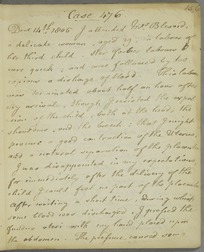 Case 476
Decr 14th. 1806 I attended Mrs. Blessed,
a delicate woman, aged 29, in labour of
her third child. The former labours
were quick, and were followed by no
serious discharge of blood. This labour
was terminated about half an hour after
my arrival, though I resisted the expul-
sion of the child, both at the head, the
shoulders, and the breech, that I might
procure a good contraction of the uterus
and a natural expulsion of the placenta.
I was disappointed in my expectations
for immediately after the delivery of the
child I could feel no part of the placenta
after waiting a short time, during which
some blood was discharged, I pressed the
fundus uteri with my hand placed upon
the abdomen. The pressure caused some